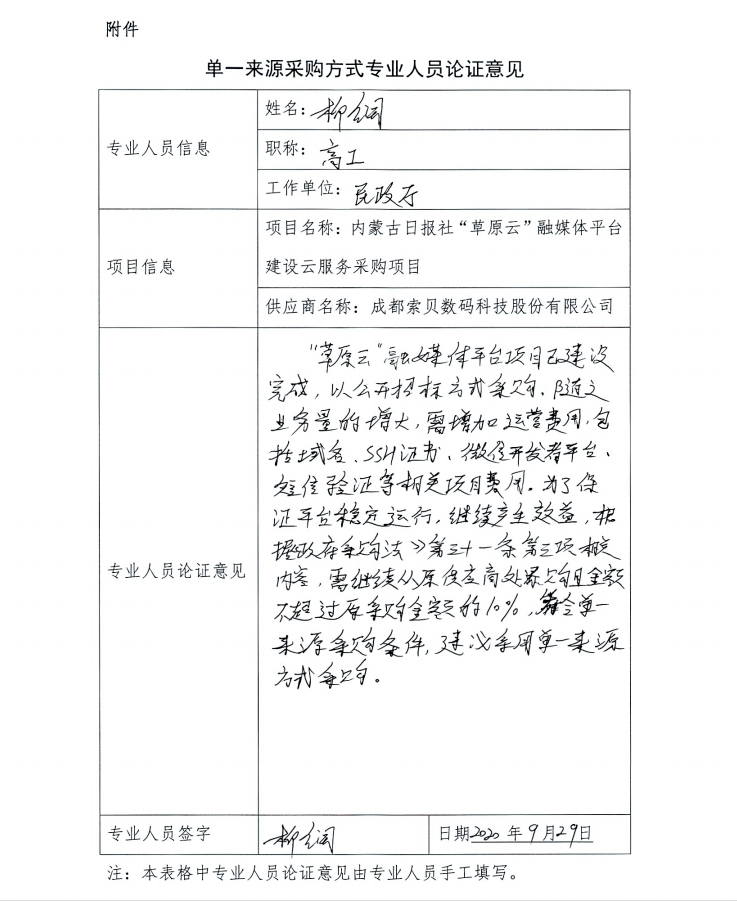 附件
单一来源采购方式专业人员论证意见
专业人员信息
姓名：柳
职称：高工
工作单位：民政厅
项目信息
项目名称：内蒙古日报社“草原云”融媒体平台
建设云服务采购项目
供应商名称：成都索贝数码科技股份有限公司
专业人员论证意见
“草原云”融媒体平台项目已建设
完成，以公开招标方式采购、随之
业务量的增大，需增加运营费用，包
括域名、SSH证书、微信开发者平台、
短信验证等相关项目费用。为了保
证平台稳定运行，继续产生效益，根
据政府采购法》第三十一条第三项相关
内容，需继续从原供应商处采购且金额
不超过原采购金额的10%，符合单一
来源采购条件，建议采用单一来源
方式采购。
专业人员签字
柳
日期2020年9月29日
注：本表格中专业人员论证意见由专业人员手工填写。